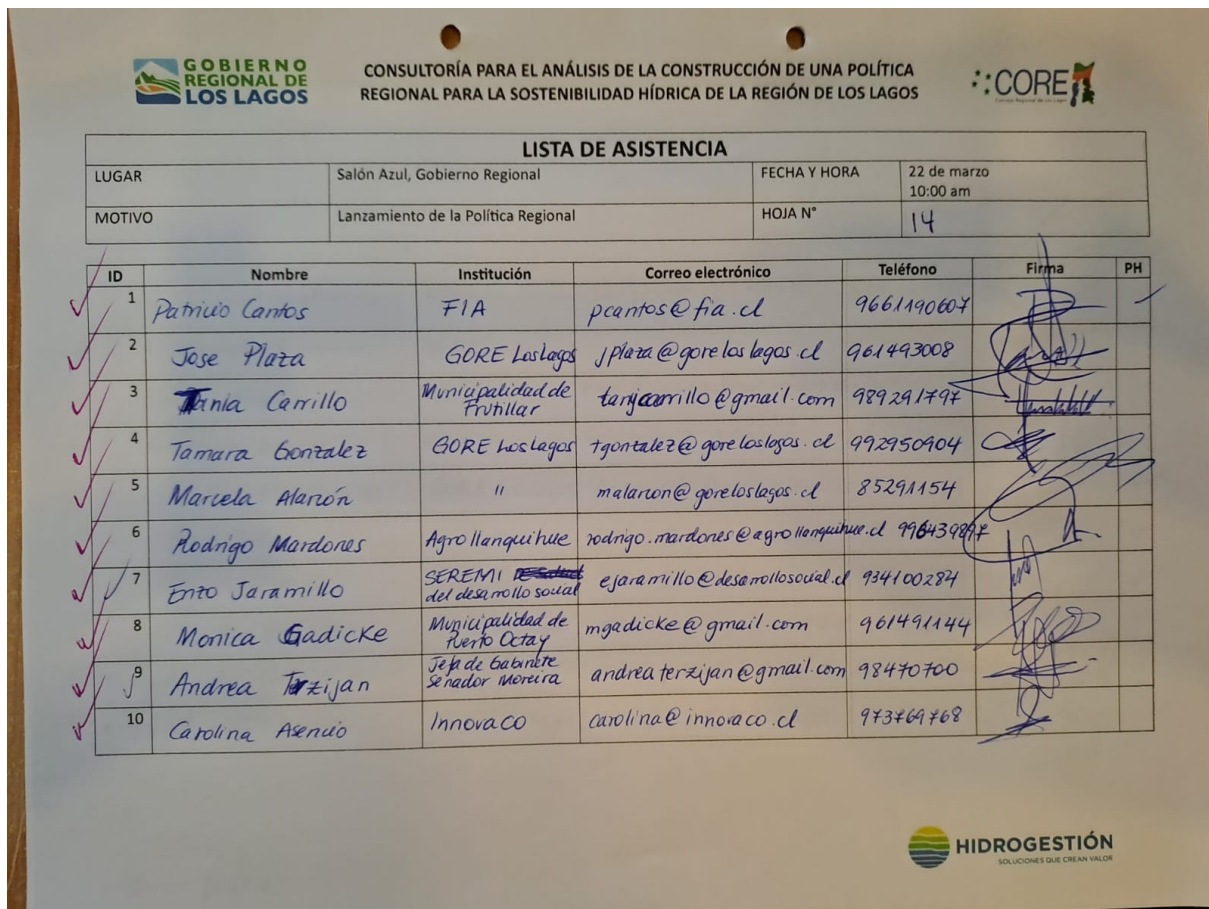 GOBIERNO
REGIONAL DE
LOS LAGOS
CONSULTORÍA PARA EL ANÁLISIS DE LA CONSTRUCCIÓN DE UNA POLÍTICA
REGIONAL PARA LA SOSTENIBILIDAD HÍDRICA DE LA REGIÓN DE LOS LAGOS
CORE
LISTA DE ASISTENCIA
LUGAR Salón Azul, Gobierno Regional FECHA Y HORA 22 de marzo
10:00 am
MOTIVO Lanzamiento de la Política Regional HOJA N° 14
ID Nombre Institución Correo electrónico Teléfono Firma PH
1 Patricio Cantos FIA pcantos@fia.cl 9661190607
2 Jose Plaza GORE Los Lagos jplaza@goreloslagos.cl 961493008
3 Tania Carrillo Municipalidad de
Frutillar tanjcarrillo@gmail.com 989291797
4 Tamara Gonzalez GORE Los Lagos tgonzalez@goreloslagos.cl 992950904
5 Marcela Alarcón " malarcon@goreloslagos.cl 85291154
6 Rodrigo Mardones Agrollanquihue rodrigo.mardones@agrollanquihue.cl 996439897
7 Enzo Jaramillo SEREMI
del desarrollo social ejaramillo@desarrollosocial.cl 934100284
8 Monica Gadicke Municipalidad de
Puerto Octay mgadicke@gmail.com 961491144
9 Andrea Terzijan Jefa de Gabinete
Senador Moreira andreaterzijan@gmail.com 98470700
10 Carolina Asencio Innovaco carolina@innovaco.cl 973769768
HIDROGESTIÓN
SOLUCIONES QUE CREAN VALOR